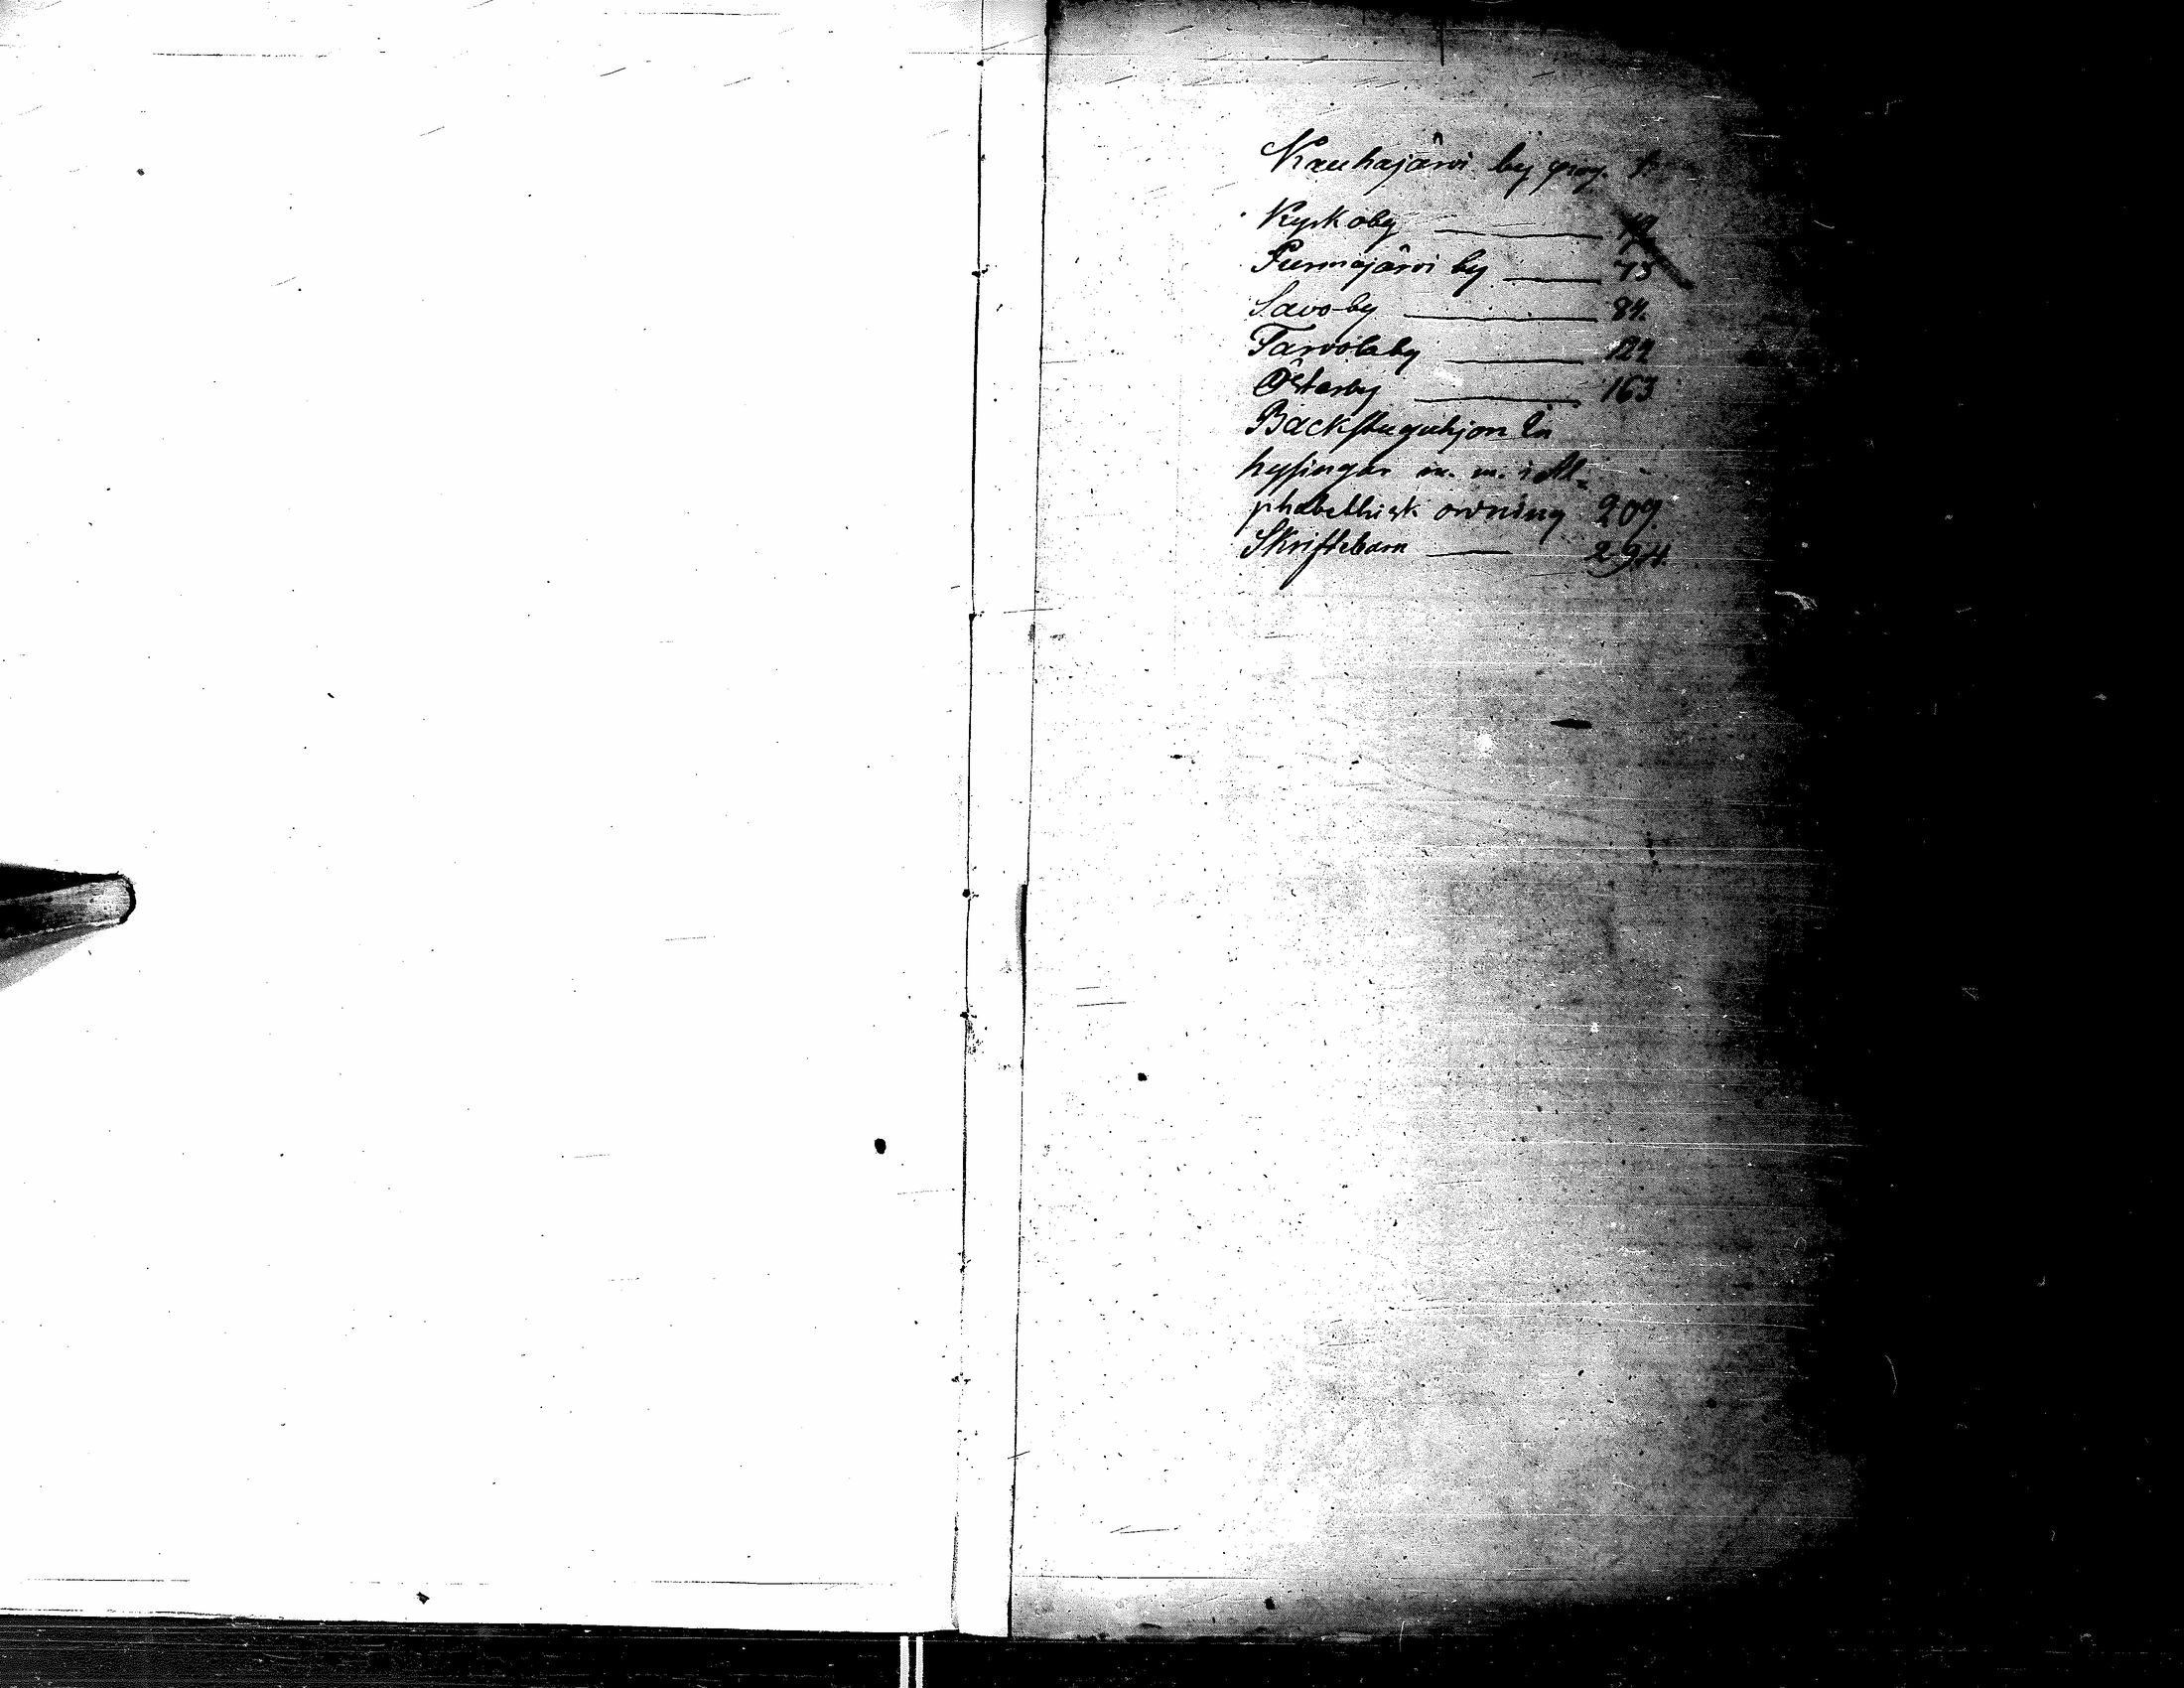 Kauhajärvi by pag.
Kyrkoby ——— 12
Purmojärvi by —— 73
Savo-by ——— 84.
Tarvolaby ——— 122
Österby ——— 163
Backstuguhjon In
hysingar m. m. i Al=
phabethisk ordning 209.
Skriftebarn —— 294.